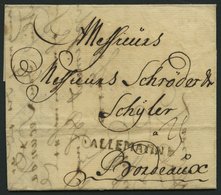 Messieurs
Messieurs Schröder &
Schÿler
D'ALLEMAGNE
Bordeaux